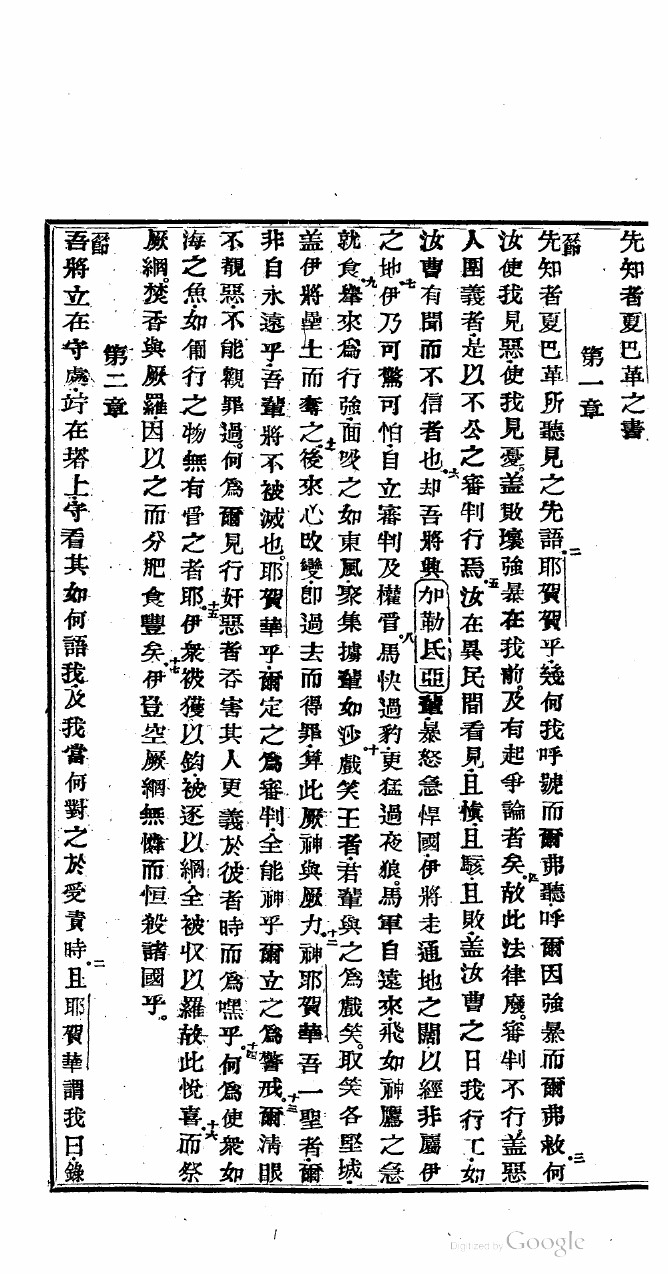 先知者夏巴革之書
第一章
一節先知者夏巴革所聽見之先語二耶賀賀乎幾何我呼號而爾弗聽呼爾因強暴而爾弗救三何
汝使我見惡使我見憂蓋敗壞強暴在我前及有起爭論者矣四故此法律廢審判不行蓋惡
人圍義者是以不公之審判行焉五汝在異民間看見且慎且駭且敗蓋汝曹之日我行工如
汝曹有聞而不信者也六却吾將興加勒氐亞輩暴怒急悍國伊將走通地之闊以經非屬伊
之地七伊乃可驚可怕自立審判及權管八馬快過豹更猛過夜狼馬軍自遠來飛如神鷹之急
就食九舉來為行強面吸之如東風聚集擄輩如沙十戲笑王者君輩與之為戲笑取笑各堅城
蓋伊將壘土而奪之十一後來心改變卽過去而得罪算此厥神與厥力十二神耶賀華吾一聖者爾
非自永遠乎吾輩將不被滅也耶賀華乎爾定之為審判全能神乎爾立之為警戒十三爾淸眼
不覩惡不能觀罪過何為爾見行奸惡者吞害其人更義於彼者時而為嘿乎十四何為使衆如
海之魚如匍行之物無有管之者耶十五伊衆被獲以鈎被逐以網全被收以羅故此悅喜十六而祭
厥網焚香與厥羅因以之而分肥食豐矣十七伊豈空厥網無憐而恒殺諸國乎
第二章
一節吾將立在守處站在塔上守看其如何語我及我當何對之於受責時二且耶賀華謂我曰錄
1
Digitized by Google